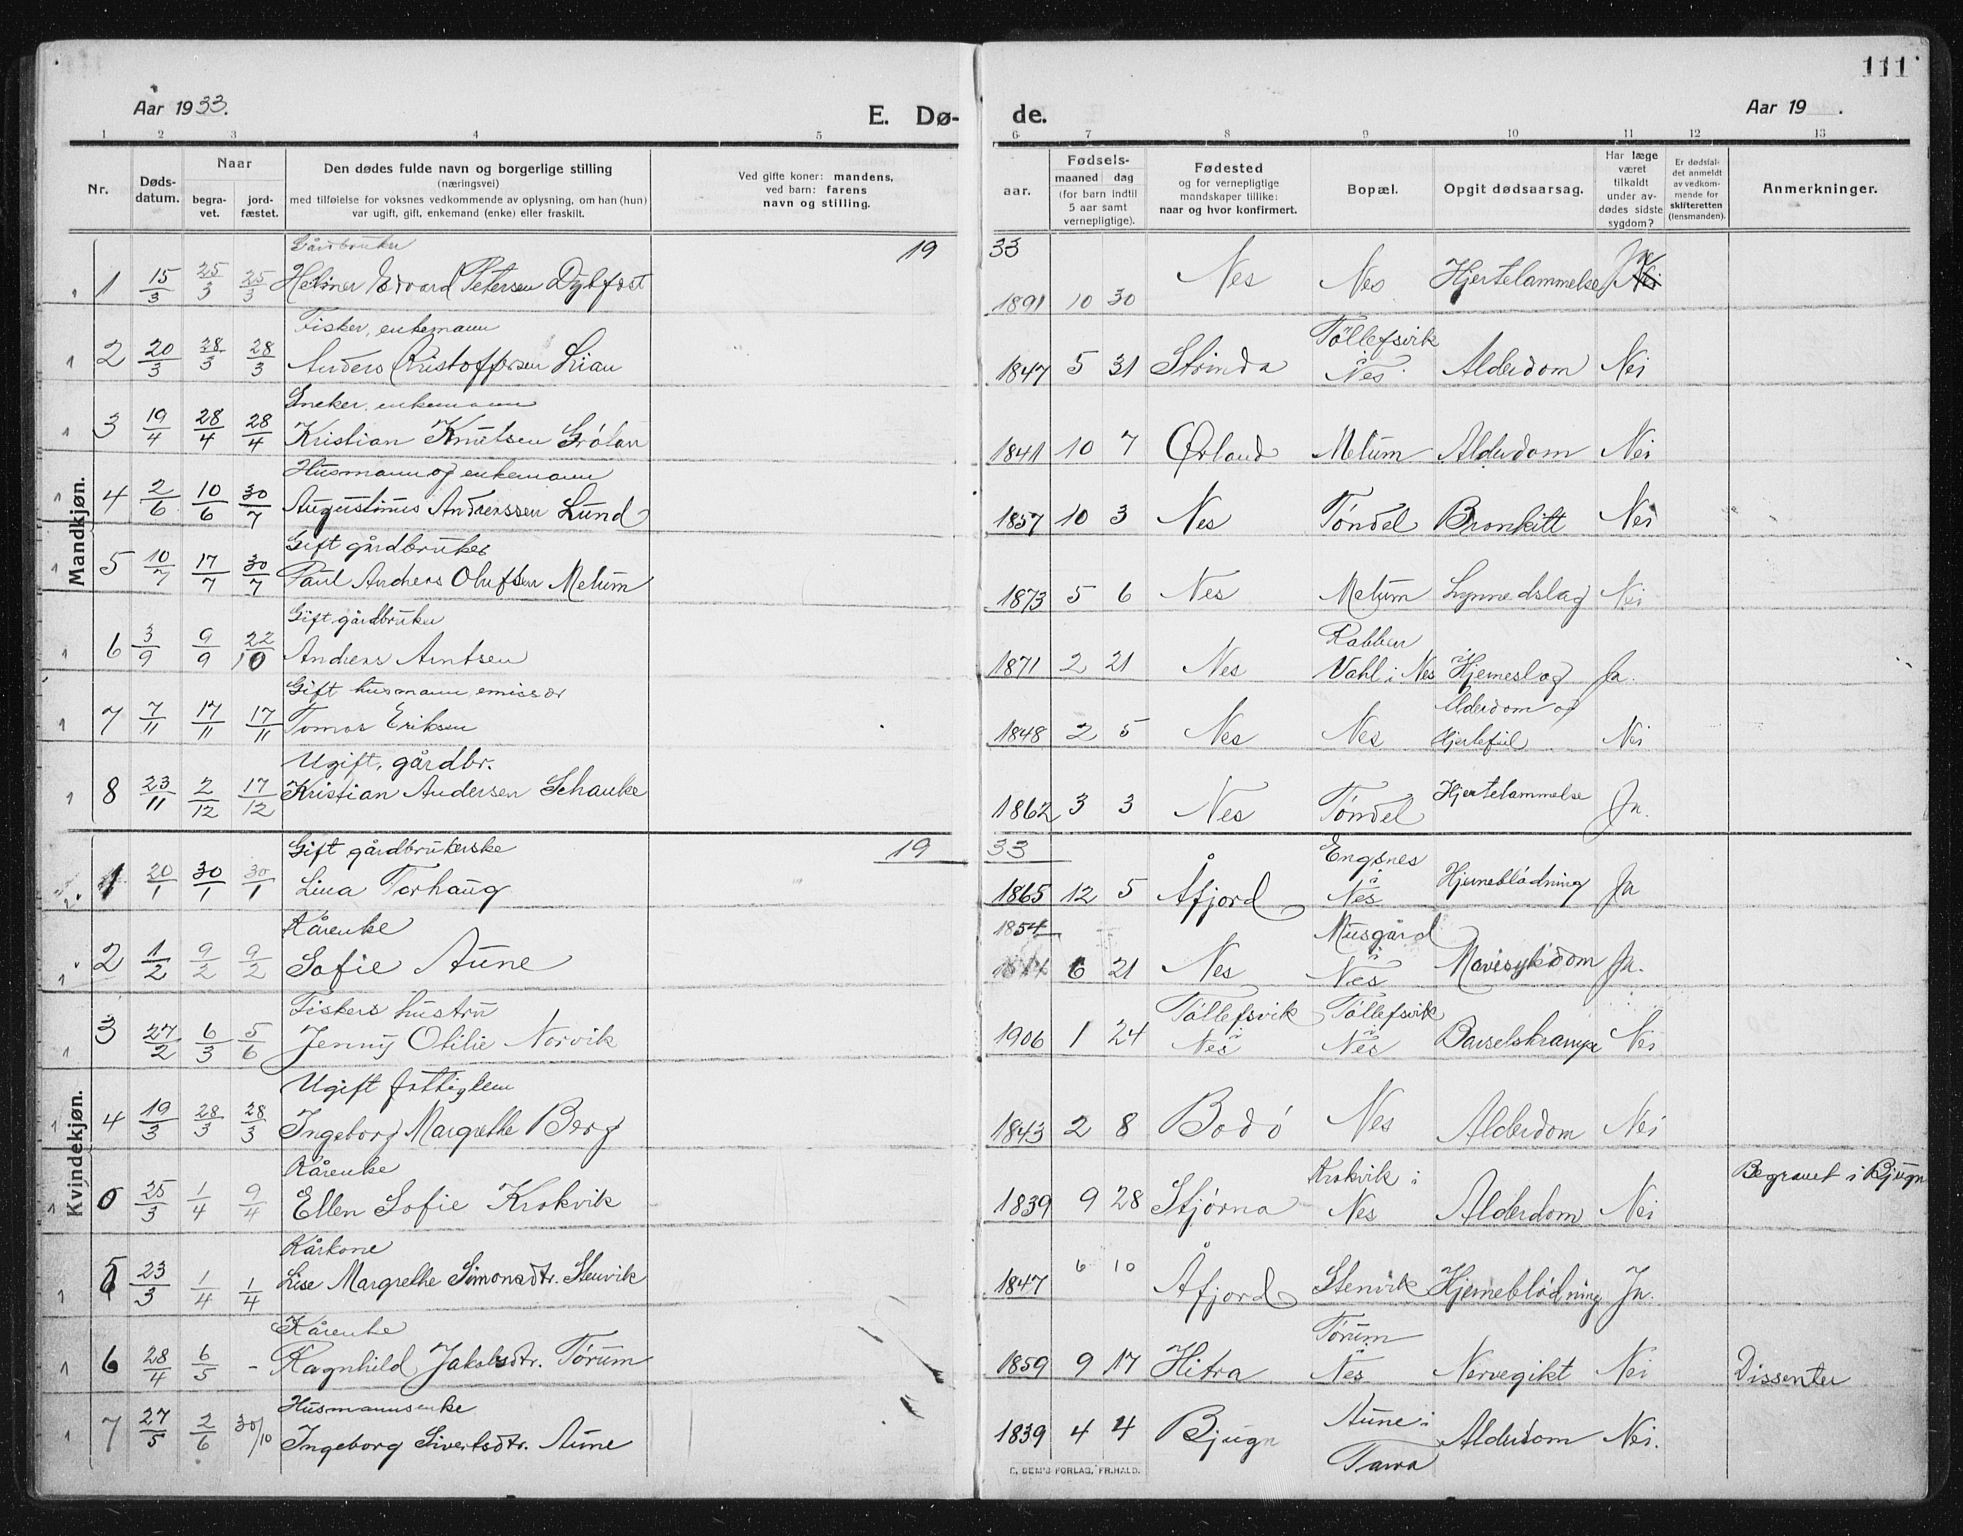 111
Aar 1933.
E. Dø-
de.
Aar 19 .
1 2 3 4 5 6 7 8 9 10 11 12 13
Nr.
Døds-
datum.
Naar
begra-
vet.
jord-
fæstet.
Den dødes fulde navn og borgerlige stilling
(næringsvei)
med tilføielse for voksnes vedkommende av oplysning, om han (hun)
var ugift, gift, enkemand (enke) eller fraskilt.
Ved gifte koner: mandens,
ved barn: farens
navn og stilling.
Fødsels-
aar.
maaned dag
(for barn indtil
5 aar samt
vernepligtige).
Fødested
og for vernepligtige
mandskaper tillike:
naar og hvor konfirmert.
Bopæl.
Opgit dødsaarsag.
Har læge
været
tilkaldt
under av-
dødes sidste
sygdom?
Er dødsfal-
det anmeldt
av vedkom-
mende for
skifteretten
(lensmanden).
Anmerkninger.
Mandkjøn.
19 33
Gårdbruker
1 15/3 25/3 25/3 Helmer Edvard Petersen Dybfest 1891 10 30 Nes Nes Hjertelammelse
Fisker, enkemann
2 20/3 28/3 28/3 Anders Kristoffersen Lian 1847 5 31 Strinda Tøllefsvik i Nes Alderdom Nei
Sneker, enkemann
3 19/4 28/4 28/4 Kristian Knutsen Grølan 1841 10 7 Ørland Melum Alderdom Nei
Husmann og enkemann
4 2/6 10/6 30/7 Augustinus Andreassen Lund 1857 10 3 Nes Tøndel Bronkitt Nei
Gift gårdbruker
5 10/7 17/7 30/7 Paul Andreas Olufsen Melum 1873 5 6 Nes Melum Lynnedslag Nei
Gift gårdbruker
6 3/9 9/9 22/10 Andreas Arntsen 1871 2 21 Nes Rabben Vahl i Nes Hjerneslag Ja.
Gift husmann, emissær
7 7/11 17/11 17/11 Tomas Eriksen 1848 2 5 Nes Nes Alderdom og Hjertefeil Nei
Ugift, gårdbr.
8 23/11 2/12 17/12 Kristian Andersen Schanke 1862 3 3 Nes Tøndel Hjertelammelse Ja.
Kvindekjøn.
19 33
Gift gårdbrukerske
1 20/1 30/1 30/1 Lina Torhaug 1865 12 5 Åfjord Engsnes i Nes Hjerneblødning Ja
Kårenke
2 1/2 9/2 9/2 Sofie Aune 1854 6 21 Nes Musgård i Nes Mavesykdom Ja.
Fiskers hustru
3 27/2 6/3 5/6 Jenny Otilie Norvik 1906 1 24 Tøllefsvik i Nes Tøllefsvik i Nes Barselskrampe Nei
Ugift fattiglem
4 19/3 28/3 28/3 Ingeborg Margrethe Berg 1843 2 8 Bodø Nes Alderdom Nei
Kårenke
0 25/3 1/4 9/4 Ellen Sofie Krokvik 1839 9 28 Stjørna Krokvik i Nes Alderdom Nei Begravet i Bjugn
Kårkone
5 23/3 1/4 1/4 Lise Margrethe Simonsdtr. Stenvik 1847 6 10 Åfjord Stenvik Hjerneblødning Ja.
Kårenke
6 28/4 6/5 - Ragnhild Jakobsdtr. Tørum 1859 9 17 Hitra Tørum i Nes Nervegikt Nei Dissenter
Husmannsenke
7 27/5 2/6 30/10 Ingeborg Sivertsdtr. Aune 1839 4 4 Bjugn Aune i Tarva Alderdom Nei.
FORLAG, FR.HALD.